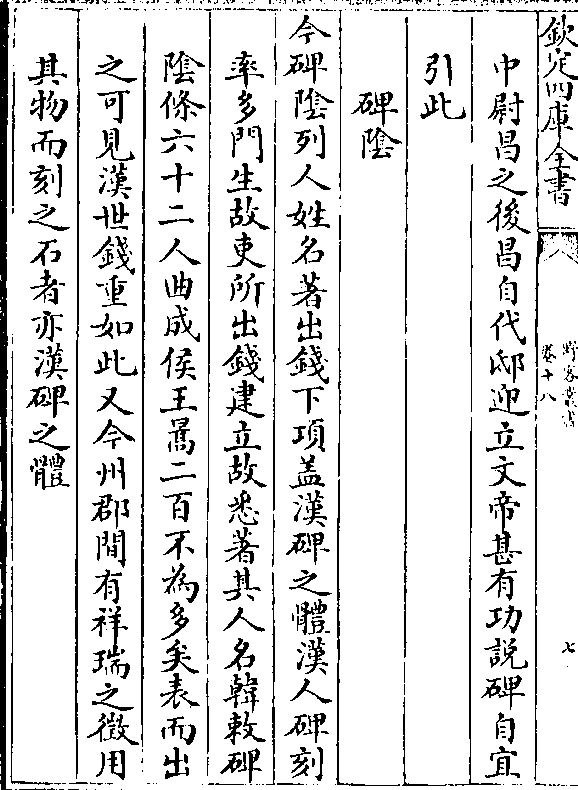 欽定四庫全書
野客叢書
卷十八
七
中尉昌之後昌自代邸迎立文帝甚有功説碑自宜
引此
碑隂
今碑隂列人姓名著出錢下項盖漢碑之體漢人碑刻
率多門生故吏所出錢建立故悉著其人名韓敕碑
隂條六十二人曲成侯王暠二百不為多矣表而出
之可見漢世錢重如此又今州郡間有祥瑞之徴用
其物而刻之石者亦漢碑之體